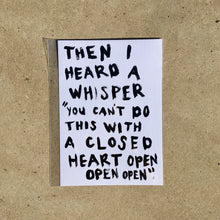 THEN I
HEARD A
WHISPER
"YOU CAN'T DO
THIS WITH
A CLOSED
HEART OPEN
OPEN OPEN"